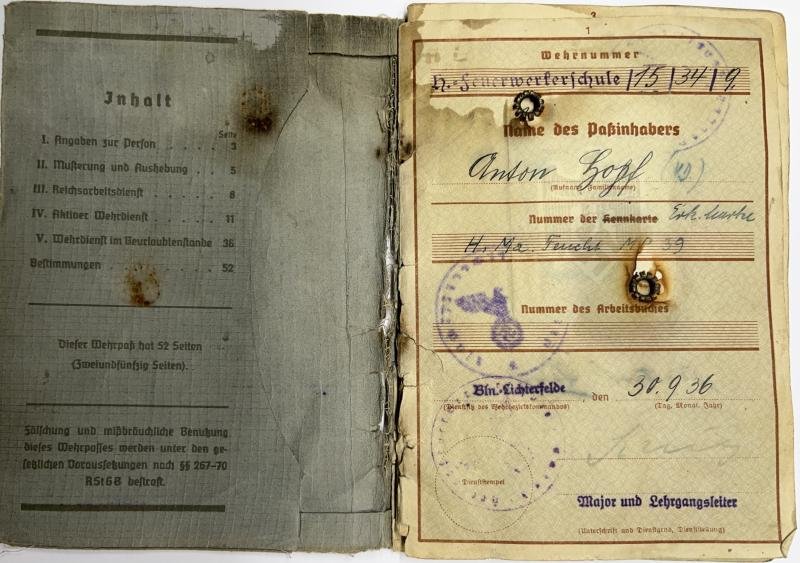 Inhalt
Seite
I. Angaben zur Person . . . . . . 3
II. Musterung und Aushebung . . 5
III. Reichsarbeitsdienst . . . . . . 8
IV. Aktiver Wehrdienst . . . . . . 11
V. Wehrdienst im Beurlaubtenstande 36
Bestimmungen . . . . . . . . 52
Dieser Wehrpaß hat 52 Seiten
(Zweiundfünfzig Seiten).
Fälschung und mißbräuchliche Benutzung
dieses Wehrpasses werden unter den ge-
setzlichen Voraussetzungen nach §§ 267-70
RStGB bestraft.
1
Wehrnummer
H.-Feuerwerkerschule /15/34/9.
Name des Paßinhabers
Anton
(Rufname, Familienname)
Nummer der Kennkarte Erk. Marke
H. Ma. Feucht 39
Nummer des Arbeitsbuches
Bln.-Lichterfelde den 30.9.36
(Dienstsitz des Wehrbezirkskommandos) (Tag, Monat, Jahr)
Dienststempel
Major und Lehrgangsleiter
(Unterschrift und Dienstgrad, Dienststellung)